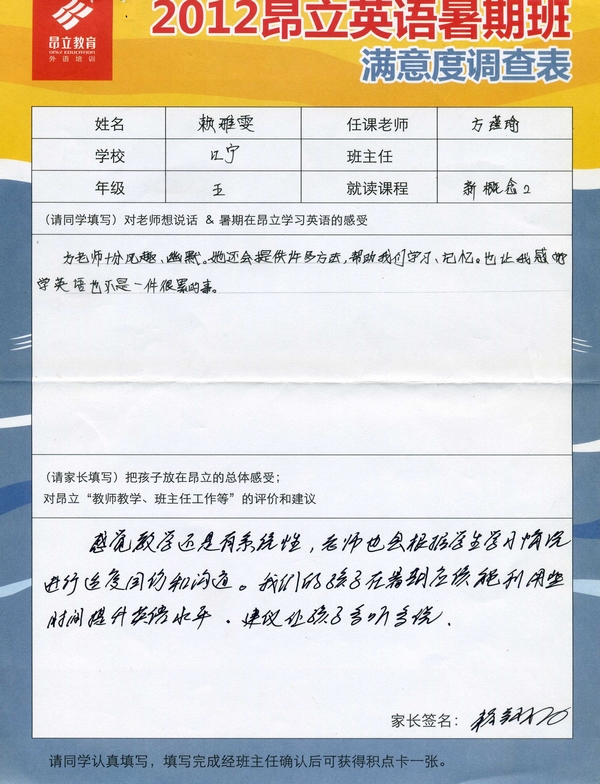 昂立教育
ONLY EDUCATION
外语培训
2012昂立英语暑期班
满意度调查表
姓名 赖雅雯 任课老师 方莲瑜
学校 江宁 班主任
年级 五 就读课程 新概念2
(请同学填写)对老师想说话 & 暑期在昂立学习英语的感受
方老师十分风趣、幽默。她还会提供许多方法,帮助我们学习、记忆。也让我感到
学英语也不是一件很累的事。
(请家长填写)把孩子放在昂立的总体感受;
对昂立“教师教学、班主任工作等”的评价和建议
感觉教学还是有系统性,老师也会根据学生学习情况
进行适度回访和沟通。我们的孩子在暑期应该能利用些
时间提升英语水平.建议让孩子多听多说.
家长签名:
请同学认真填写,填写完成经班主任确认后可获得积点卡一张。